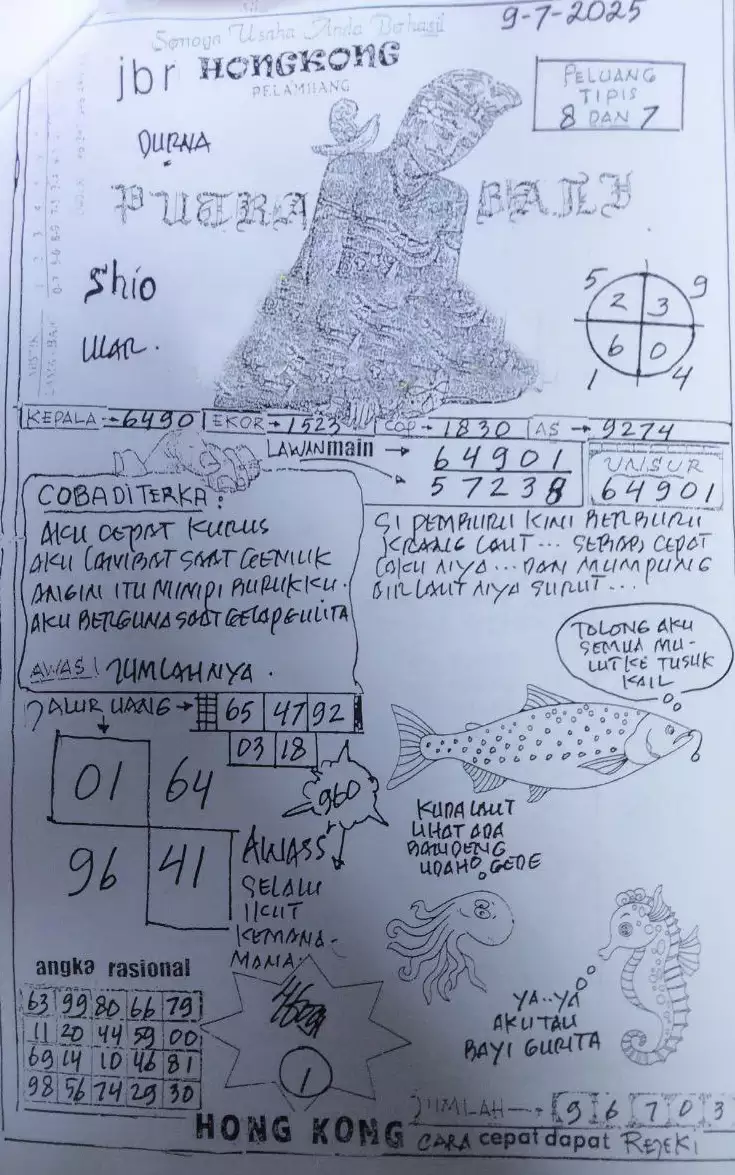 Semoga Usaha Anda Berhasil
9-7-2025
jbr HONGKONG
PELAMUANG
PELUANG
TIPIS
8 DAN 7
DURNA
PUTRA BALI
Shio
ULAR.
5 9
2 3
6 0
1 4
KEPALA → 6490 EKOR → 1523 COP → 1830 AS → 9274
LAWAN main → 64901
57238
UNSUR
64901
COBA DITERKA:
AKU CEPAT KURUS
AKU LAMBAT SAAT GEMUK
ANGIN ITU MIMPI BURUKKU.
AKU BERGUNA SAAT GELAP GULITA
AWAS! JUMLAHNYA.
SI PEMBURU KINI BERBURU
KRANG LAUT... SEBAB, CEPAT
LAKU NIYA... DAN MUMPUNG
AIR LAUT NIYA SURUT...
TOLONG AKU
SEMUA MU-
LUTKE TUSUK
KAIL
JALUR UANG → 65 47 92
03 18
960
01 64
96 41
AWASS
SELALU
IKUT
KEMANA-
MANA.
KUDA LAUT
LIHAT ADA
BANDENG
UDAH GEDE
YA..YA
AKU TAU
BAYI GURITA
angka rasional
63 99 80 66 79
11 20 44 59 00
69 14 10 46 81
98 56 74 29 30
1
JUMLAH → 9 6 7 0 3
HONG KONG CARA cepat dapat REJEKI